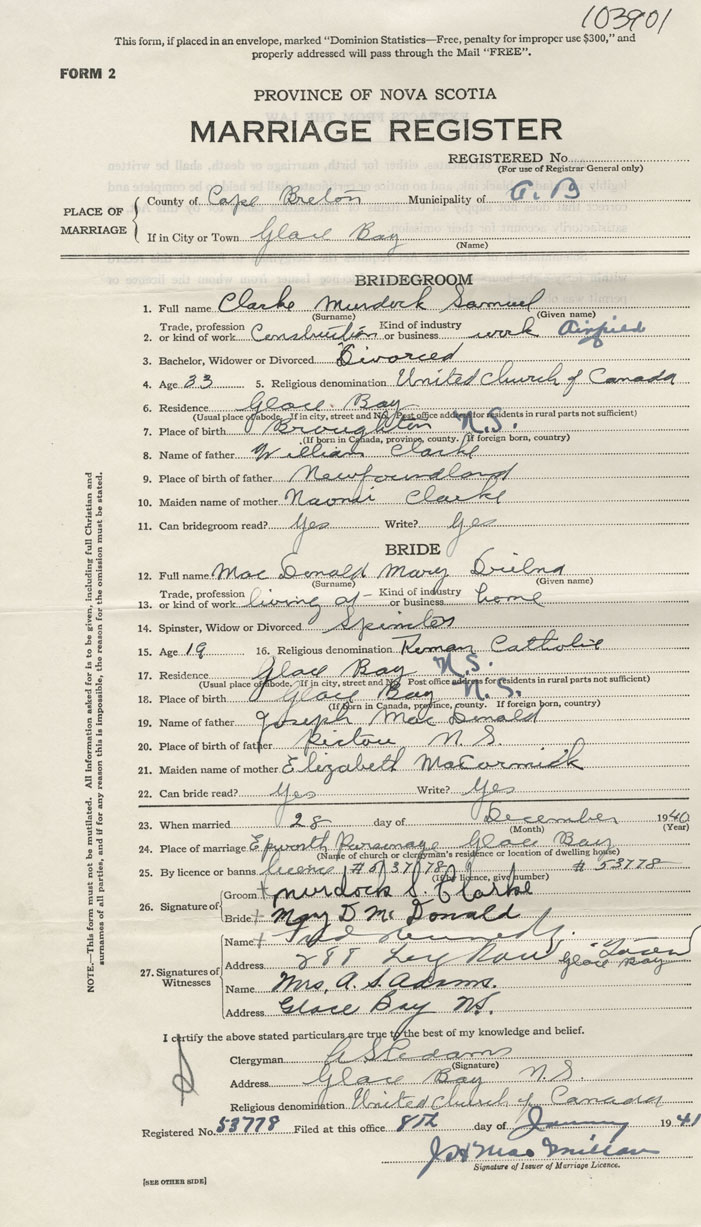 103901
This form, if placed in an envelope, marked "Dominion Statistics—Free, penalty for improper use $300," and
properly addressed will pass through the Mail "FREE".
FORM 2
PROVINCE OF NOVA SCOTIA
MARRIAGE REGISTER
REGISTERED No.
(For use of Registrar General only)
PLACE OF MARRIAGE
County of Cape Breton Municipality of G. B
If in City or Town Glace Bay
(Name)
BRIDEGROOM
1. Full name Clarke Murdock Samuel
(Surname) (Given name)
2. Trade, profession or kind of work Construction Kind of industry or business work Airfield
3. Bachelor, Widower or Divorced Divorced
4. Age 33 5. Religious denomination United Church of Canada
6. Residence Glace Bay
(Usual place of abode. If in city, street and No. Post office address for residents in rural parts not sufficient)
7. Place of birth Broughton N.S.
(If born in Canada, province, county. If foreign born, country)
8. Name of father William Clarke
9. Place of birth of father Newfoundland
10. Maiden name of mother Naomi Clarke
11. Can bridegroom read? Yes Write? Yes
BRIDE
12. Full name Mac Donald Mary
(Surname) (Given name)
13. Trade, profession or kind of work living at - Kind of industry or business home
14. Spinster, Widow or Divorced Spinster
15. Age 19 16. Religious denomination Roman Catholic
17. Residence Glace Bay N.S.
(Usual place of abode. If in city, street and No. Post office address for residents in rural parts not sufficient)
18. Place of birth Glace Bay N.S.
(If born in Canada, province, county. If foreign born, country)
19. Name of father Joseph Mac Donald
20. Place of birth of father Pictou N.S.
21. Maiden name of mother Elizabeth MacCormick
22. Can bride read? Yes Write? Yes
23. When married 28 day of December 1940
(Month) (Year)
24. Place of marriage Epworth Parsonage Glace Bay
(Name of church or clergyman's residence or location of dwelling house)
25. By licence or banns licence #53778 # 53778
(If by licence, give number)
26. Signature of
Groom Murdock S. Clarke
Bride Mary D Mc Donald
27. Signatures of Witnesses
Name
Address 288 Row
Glace Bay
Name Mrs. A. S. Adams.
Address Glace Bay NS.
I certify the above stated particulars are true to the best of my knowledge and belief.
Clergyman A S Adams
(Signature)
Address Glace Bay N.S.
Religious denomination United Church of Canada
Registered No. 53778 Filed at this office 8th day of January 1941
J H Mac Millan
Signature of Issuer of Marriage Licence.
[SEE OTHER SIDE]
NOTE.—This form must not be mutilated. All information asked for is to be given, including full Christian and
surnames of all parties, and if for any reason this is impossible, the reason for the omission must be stated.